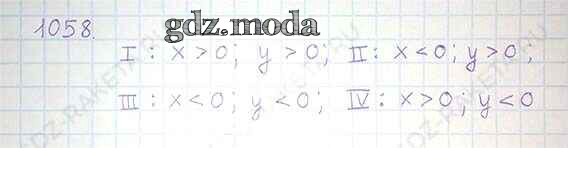 1058.
gdz.moda
I : x > 0; y > 0; II : x < 0; y > 0;
III : x < 0; y < 0; IV : x > 0; y < 0
GDZ-RAKETA.RU